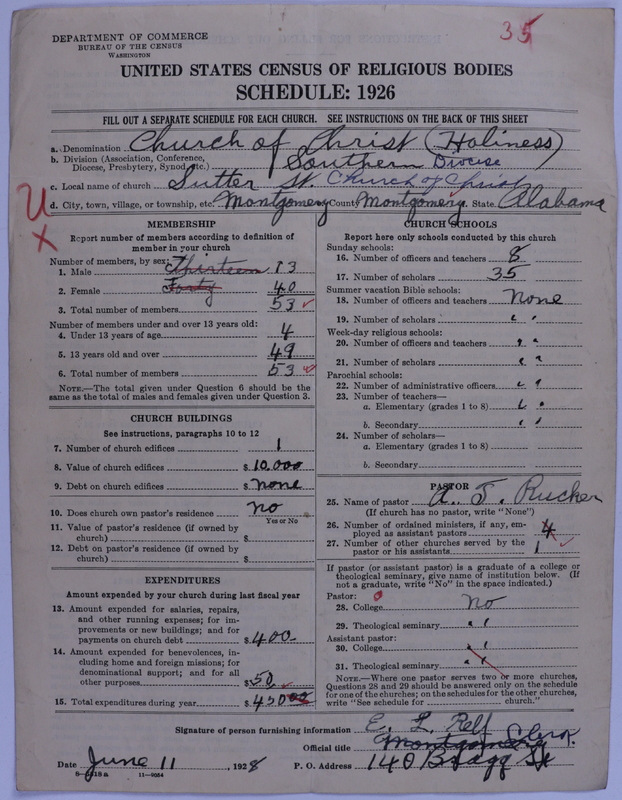 35
DEPARTMENT OF COMMERCE
BUREAU OF THE CENSUS
WASHINGTON
UNITED STATES CENSUS OF RELIGIOUS BODIES
SCHEDULE: 1926
FILL OUT A SEPARATE SCHEDULE FOR EACH CHURCH. SEE INSTRUCTIONS ON THE BACK OF THIS SHEET
a. Denomination Church of Christ (Holiness)
b. Division (Association, Conference, Diocese, Presbytery, Synod, etc.) Southern Diocese
c. Local name of church Sutter St. Church of Christ
d. City, town, village, or township, etc. Montgomery County Montgomery State Alabama
U
X
MEMBERSHIP
Report number of members according to definition of member in your church
Number of members, by sex:
1. Male Thirteen 13
2. Female Forty 40
3. Total number of members 53
Number of members under and over 13 years old:
4. Under 13 years of age 4
5. 13 years old and over 49
6. Total number of members 53
NOTE.—The total given under Question 6 should be the same as the total of males and females given under Question 3.
CHURCH BUILDINGS
See instructions, paragraphs 10 to 12
7. Number of church edifices 1
8. Value of church edifices $ 10,000
9. Debt on church edifices $ none
10. Does church own pastor's residence? no
Yes or No
11. Value of pastor's residence (if owned by church) $
12. Debt on pastor's residence (if owned by church) $
EXPENDITURES
Amount expended by your church during last fiscal year
13. Amount expended for salaries, repairs, and other running expenses; for improvements or new buildings; and for payments on church debt $ 400
14. Amount expended for benevolences, including home and foreign missions; for denominational support; and for all other purposes $ 50
15. Total expenditures during year $ 450
CHURCH SCHOOLS
Report here only schools conducted by this church
Sunday schools:
16. Number of officers and teachers 8
17. Number of scholars 35
Summer vacation Bible schools:
18. Number of officers and teachers None
19. Number of scholars " "
Week-day religious schools:
20. Number of officers and teachers " "
21. Number of scholars " "
Parochial schools:
22. Number of administrative officers " "
23. Number of teachers—
a. Elementary (grades 1 to 8) " "
b. Secondary " "
24. Number of scholars—
a. Elementary (grades 1 to 8)
b. Secondary
PASTOR
25. Name of pastor A. J. Rucker
(If church has no pastor, write "None")
26. Number of ordained ministers, if any, employed as assistant pastors 4
27. Number of other churches served by the pastor or his assistants 1
If pastor (or assistant pastor) is a graduate of a college or theological seminary, give name of institution below. (If not a graduate, write "No" in the space indicated.)
Pastor:
28. College No
29. Theological seminary " "
Assistant pastor:
30. College " "
31. Theological seminary " "
NOTE.—Where one pastor serves two or more churches, Questions 28 and 29 should be answered only on the schedule for one of the churches; on the schedules for the other churches, write "See schedule for church."
Signature of person furnishing information E. L. Relf
Official title Montgomery Clerk.
Date June 11, 1928 P. O. Address 140 Bragg St
8—4818a 11—9064